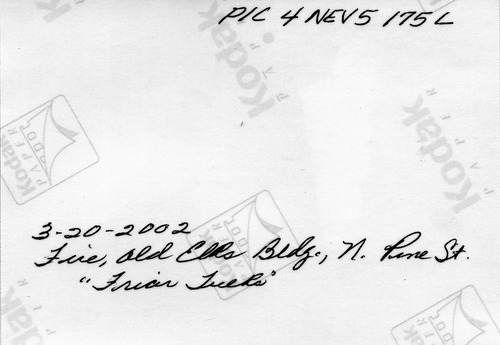 PIC 4 NEV5 175L
Kodak
PAPER
Kodak
PAPER
Kodak
PAPER
3-20-2002
Fire, Old Elks Bldg., N. Pine St.
"Friar Tucks"
Kodak
PAPER
Kodak
PAPER
Kodak
PAPER